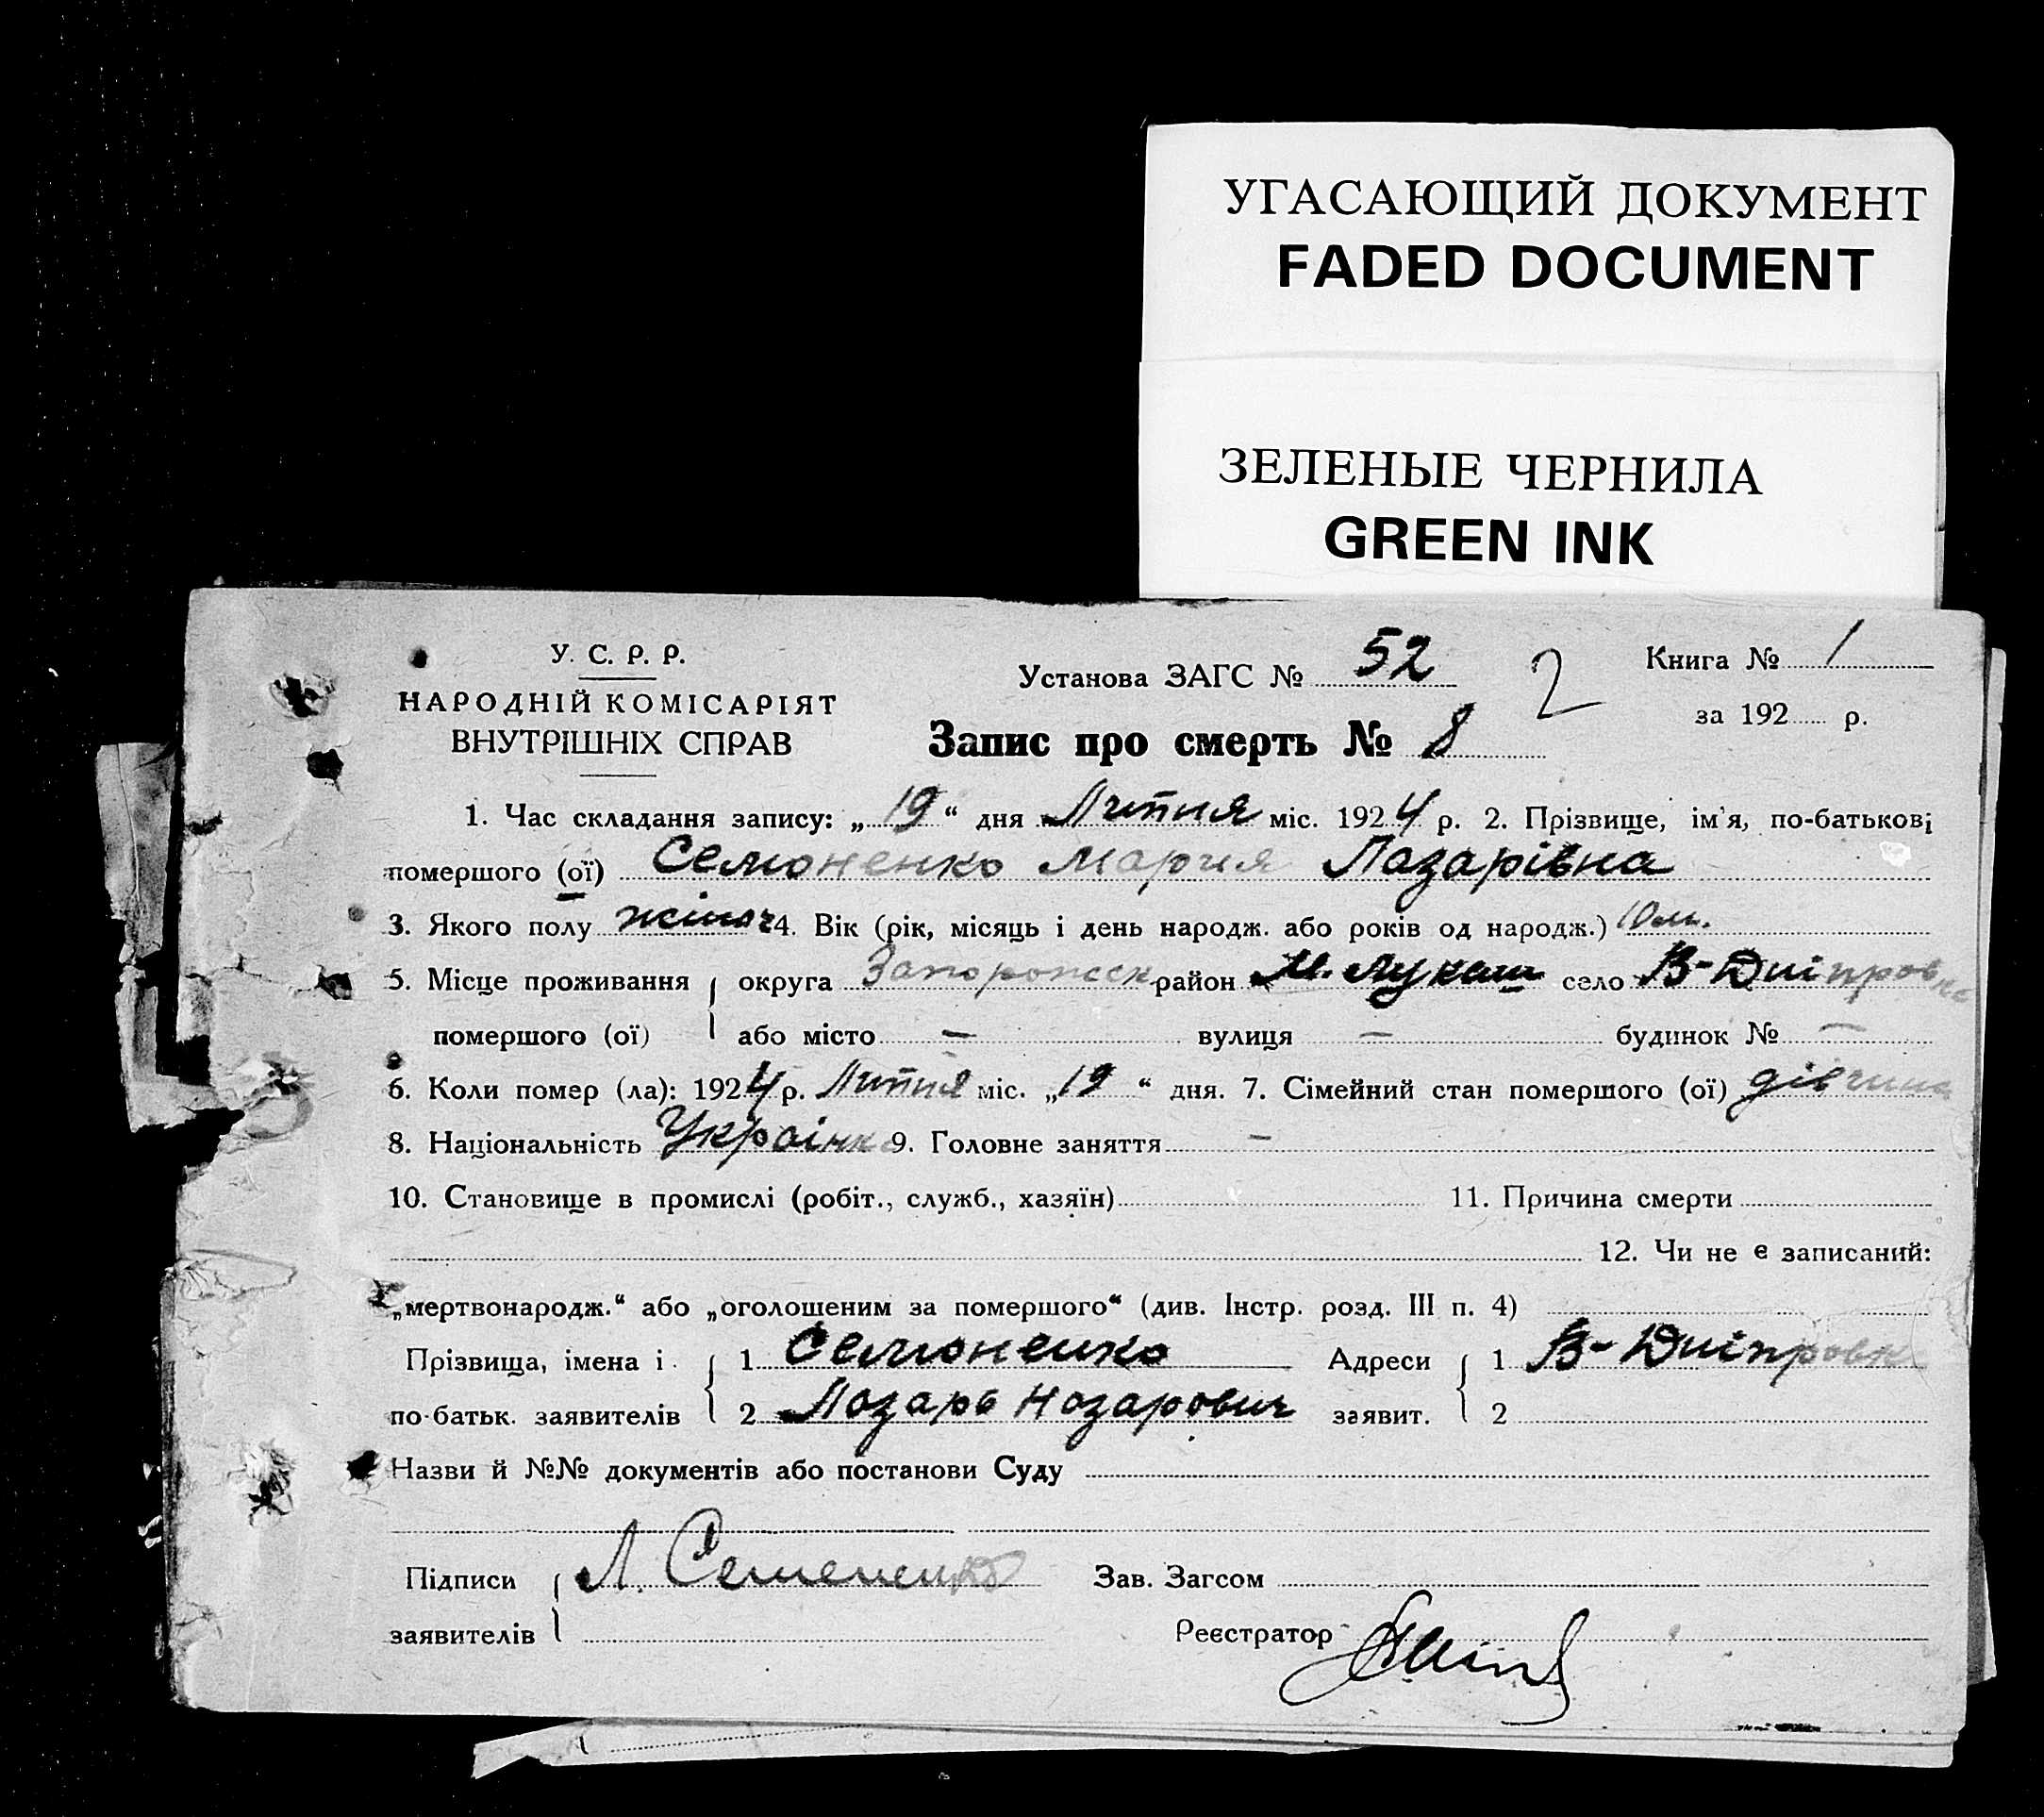 УГАСАЮЩИЙ ДОКУМЕНТ
FADED DOCUMENT
ЗЕЛЕНЫЕ ЧЕРНИЛА
GREEN INK
У. С. Р. Р.
НАРОДНІЙ КОМІСАРІЯТ
ВНУТРІШНІХ СПРАВ
Установа ЗАГС № 52
2
Книга № 1
за 192 р.
Запис про смерть № 8
1. Час складання запису: „19“ дня Липня міс. 1924 р. 2. Прізвище, ім'я, по-батькові
помершого (ої) Семоненко Мария Лазарівна
3. Якого полу жіноч 4. Вік (рік, місяць і день народж. або років од народж.) 10 м.
5. Місце проживання округа Запорожск район М. Лукаш село В-Дніпровка
помершого (ої) або місто – вулиця – будинок № –
6. Коли помер (ла): 1924 р. Липня міс. „19“ дня. 7. Сімейний стан помершого (ої) дівчина
8. Національність Українка 9. Головне заняття –
10. Становище в промислі (робіт., служб., хазяїн) 11. Причина смерти
12. Чи не є записаний:
„мертвонародж.“ або „оголошеним за помершого“ (див. Інстр. розд. III п. 4)
Прізвища, імена і 1 Семоненко Адреси 1 В-Дніпровк
по-батьк. заявителів 2 Лазарь Назарович заявит. 2
Назви й №№ документів або постанови Суду
Підписи Л. Семененко Зав. Загсом
заявителів Реєстратор